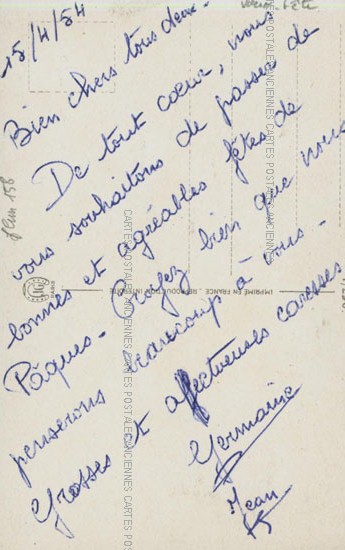 15/4/54
Bien chers tous deux -
De tout coeur, nous
vous souhaitons de passer de
bonnes et agréables fêtes de
Pâques - Croyez bien que nous
penserons beaucoup à vous -
Grosses et affectueuses caresses
Germaine
Jean
IMPRIMÉ EN FRANCE REPRODUCTION INTERDITE
CARTES POSTALES ANCIENNES CARTES POSTALES ANCIENNES CARTES POSTALES ANCIENNES